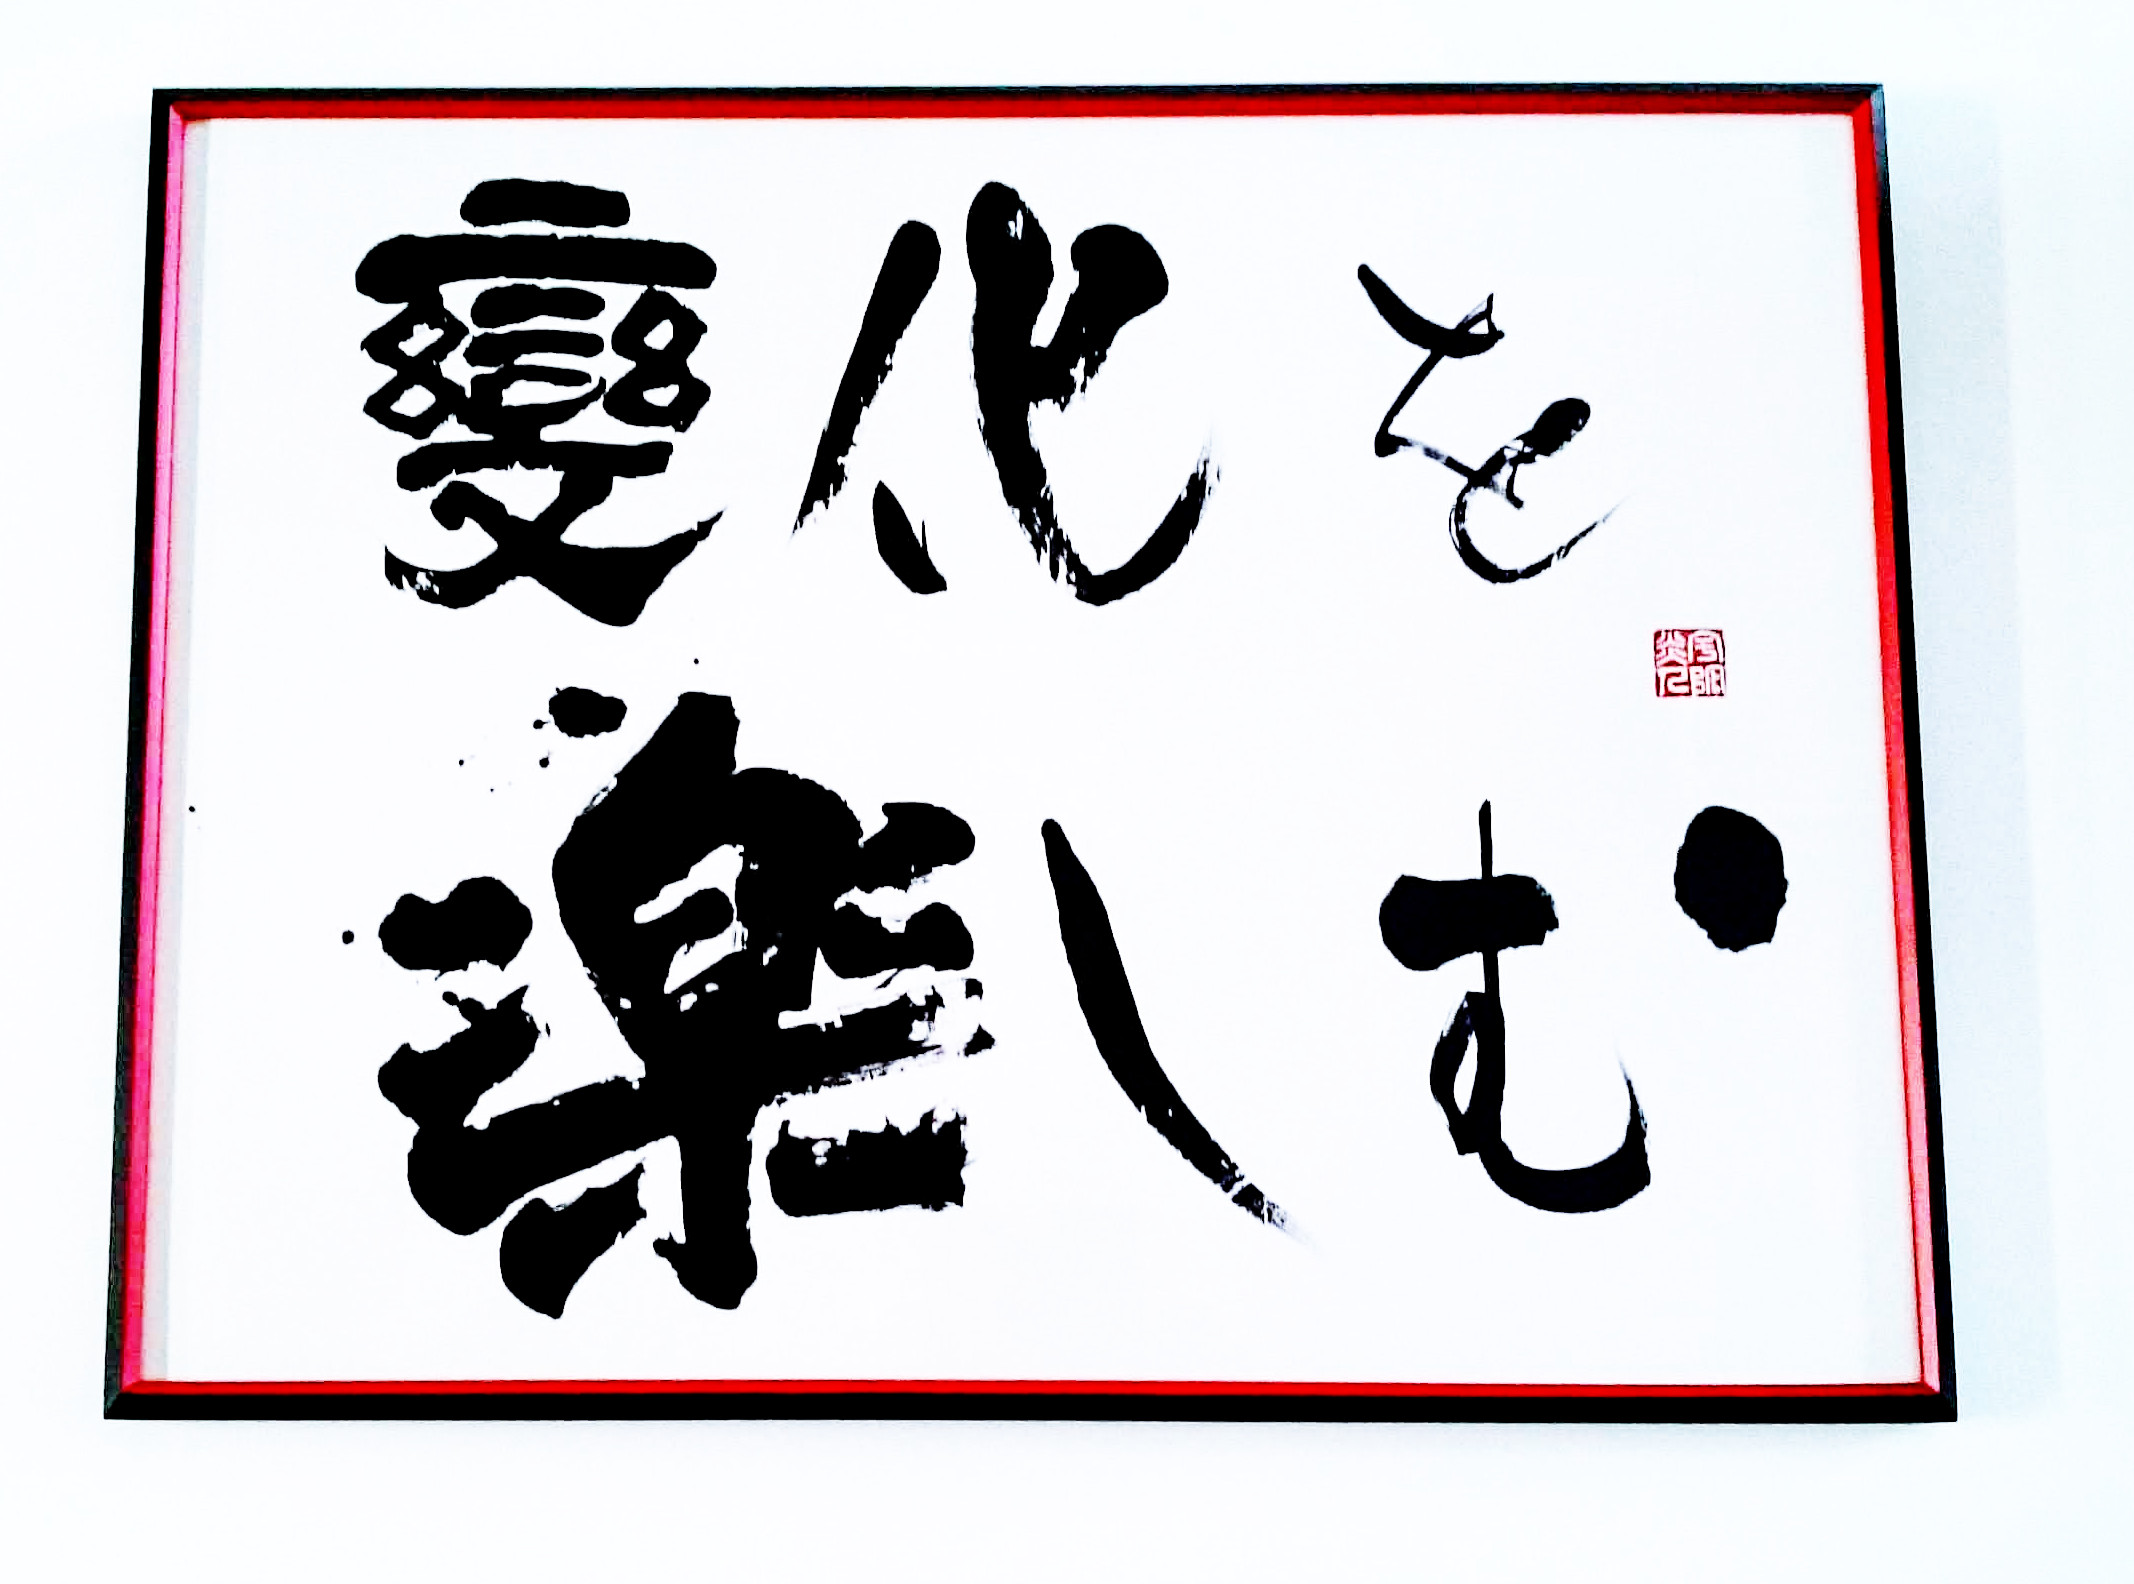 變化を
楽しむ